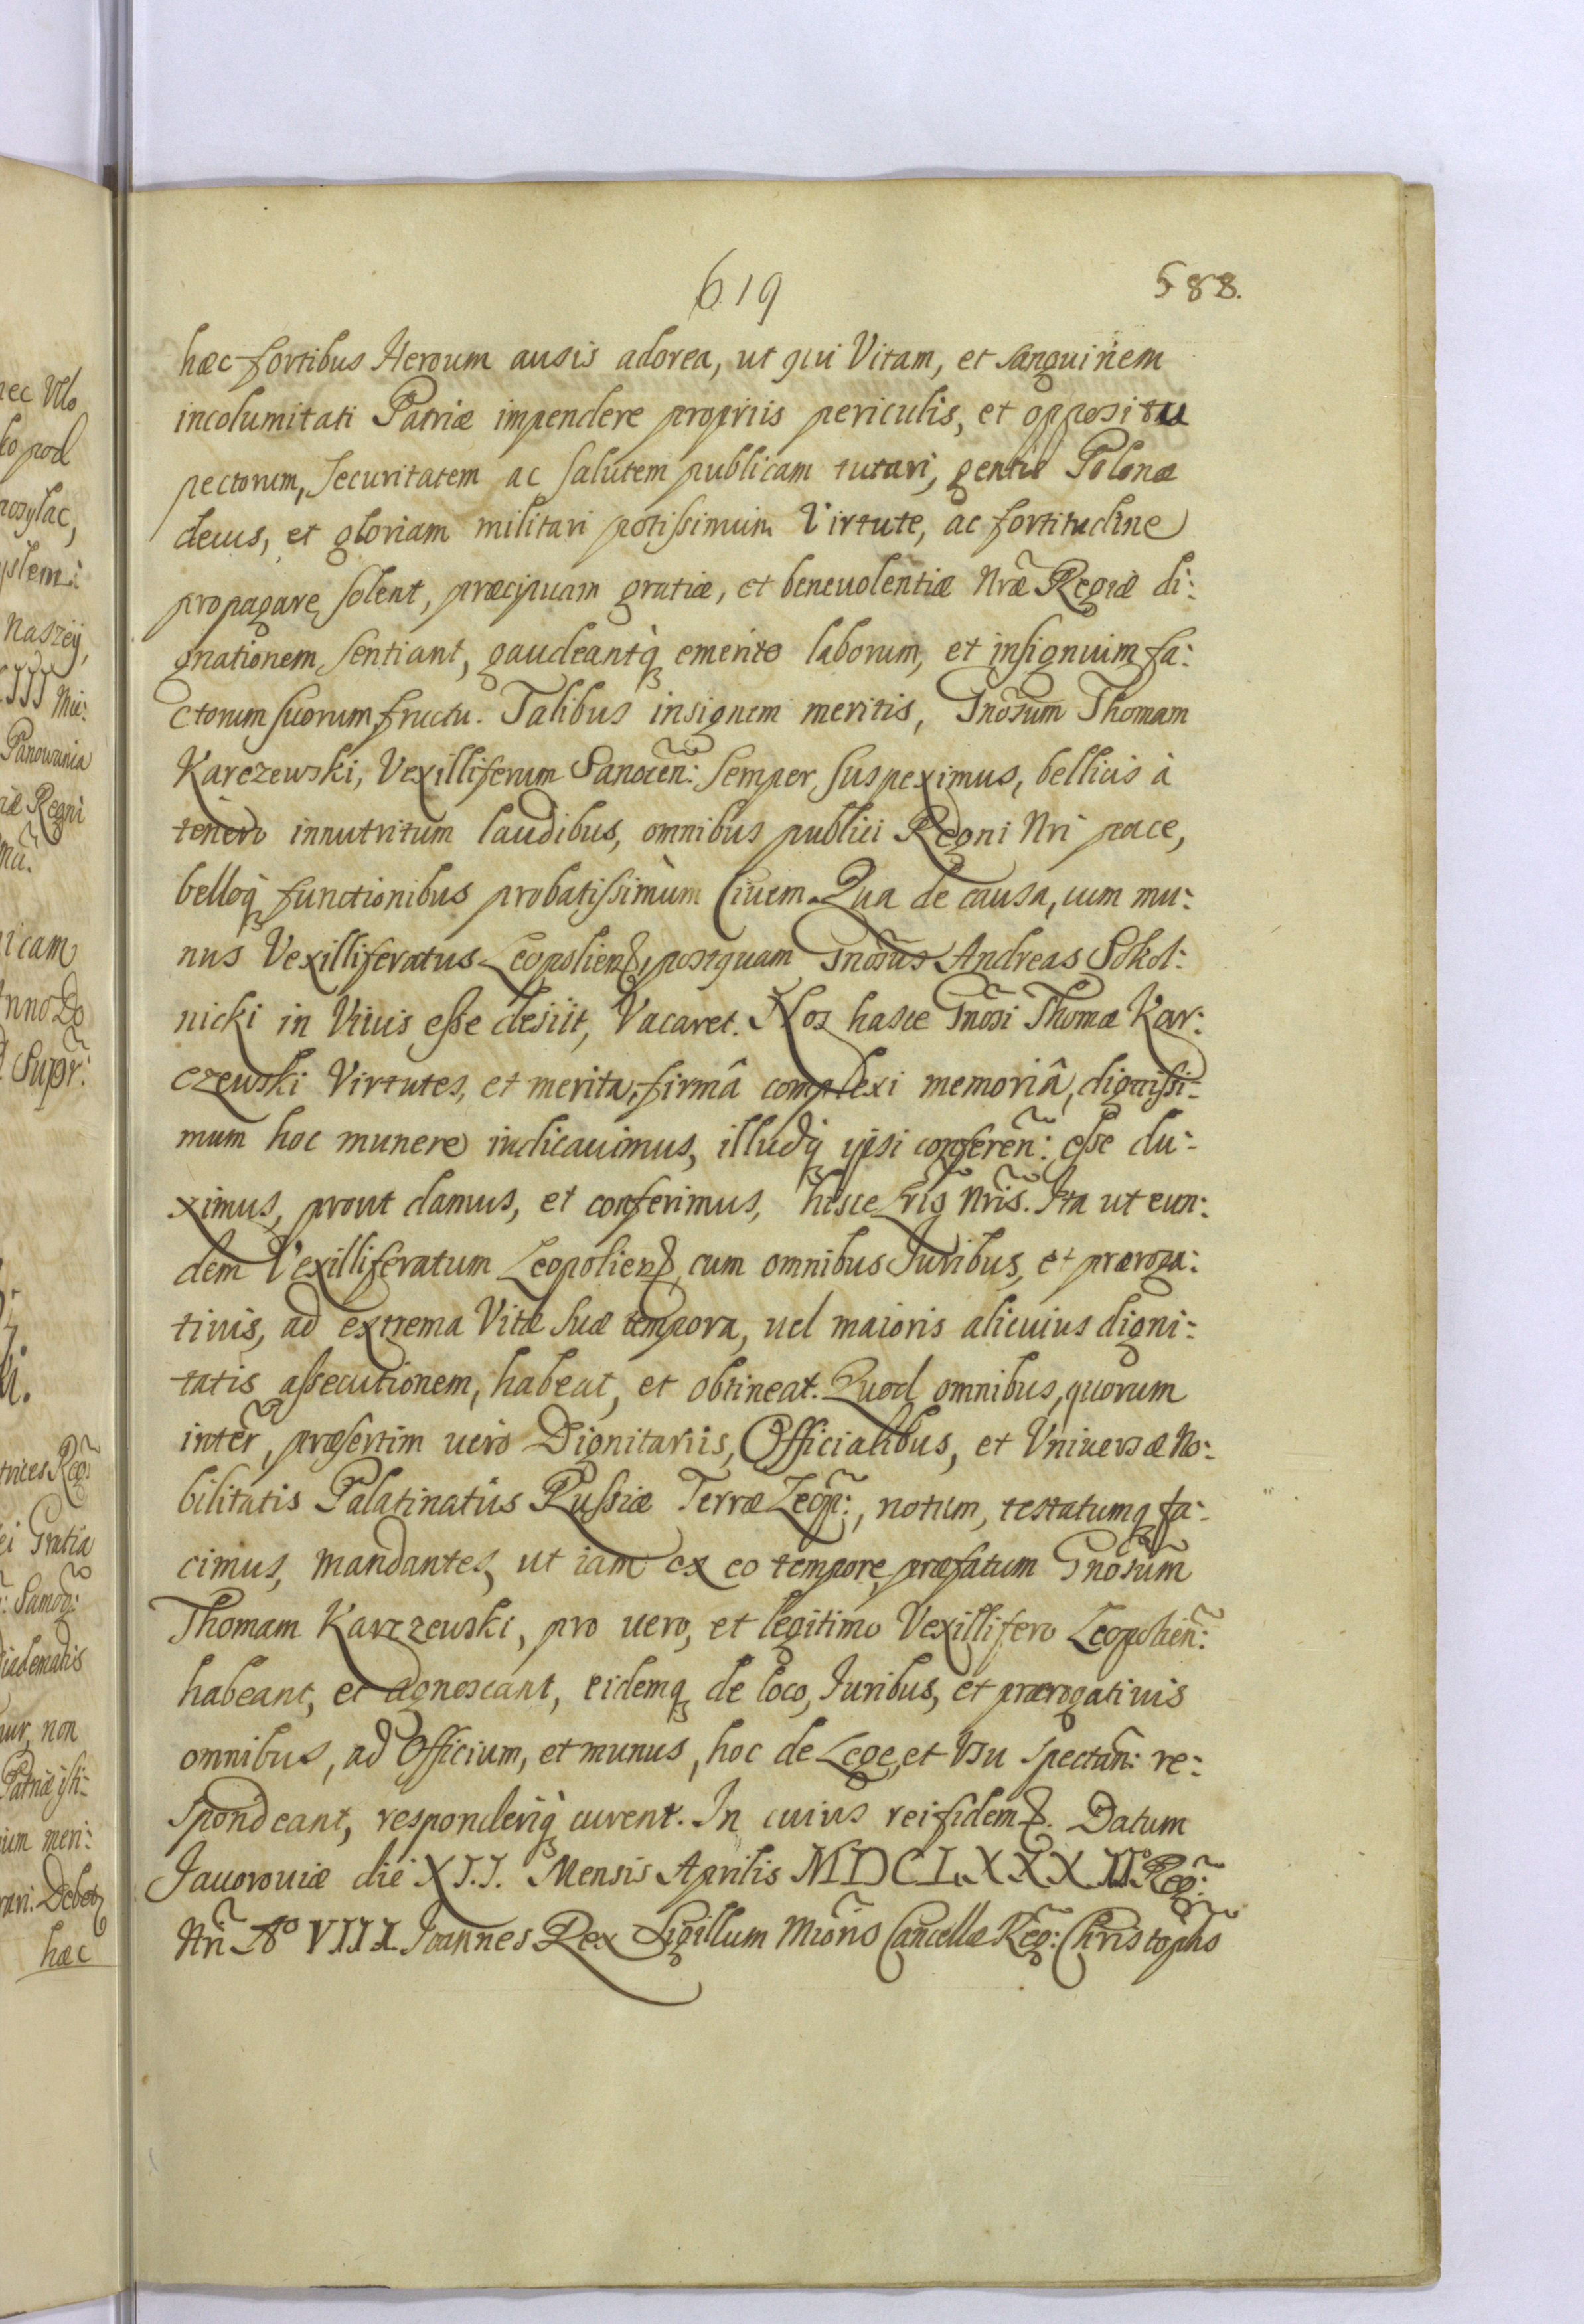 619
588.
hæc fortibus Heroum ausis adorea, ut qui Vitam, et sanguinem
incolumitati Patriæ impendere proprijs periculis, et oppositu
pectorum, securitatem ac salutem publicam tutari, gentis Polonæ
decus, et gloriam militari potissimum Virtute, ac fortitudine
propagare solent, præcipuam gratiæ, et beneuolentiæ Nr̃æ Regiæ di:
gnationem sentiant, gaudeantq̀ emerito laborum, et insignium fa:
ctorum suorum fructu. Talibus insignem meritis, Gnõsum Thomam
Karczewski, Vexilliferum Sanocen̄: semper suspeximus, bellicis à
tenero innutritum laudibus, omnibus publici Regni Nri pace,
belloq̀ functionibus probatissimum Ciuem. Qua de causa, cum mu:
nus Vexilliferatus Leopolien̄, postquam Gnõsus Andreas Sokol:
nicki in Viuis esse desijt, Vacaret. Nos hasce Gnõsi Thomæ Kar:
czewski Virtutes, et merita, firmâ complexi memoriâ, dignissi:
mum hoc munere iudicauimus, illudq̀ ipsi conferen̄: esse du:
ximus, prout damus, et conferimus, hisce Lr̃is Nr̃is. Ita ut eun:
dem Vexilliferatum Leopolien̄, cum omnibus Iuribus, et præroga:
tiuis, ad extrema Vitæ suæ tempora, uel maioris alicuius digni:
tatis assecutionem, habeat, et obtineat. Quod omnibus, quorum
inter̃, præsertim uero Dignitarijs, Officialibus, et Vniuersæ No:
bilitatis Palatinatus Russiæ Terræ Leop̃:, notum, testatumq fa:
cimus, mandantes, ut iam ex eo tempore præfatum Gnõsum
Thomam Karczewski, pro uero, et legitimo Vexillifero Leopolien̄:
habeant, et agnoscant, eidemq de loco, Iuribus, et prærogatiuis
omnibus, ad Officium, et munus, hoc de Lege, et Vsu spectan̄: re:
spondeant, responderiq̀ curent. In cuius rei fidem. Datum
Jauorouiæ die XII. Mensis Aprilis MDCLXXXII° Reg̃:
Nr̃i A° VIII. Ioannes Rex Sigillum Miõris Cancellæ Reg̃: Christoph̃o